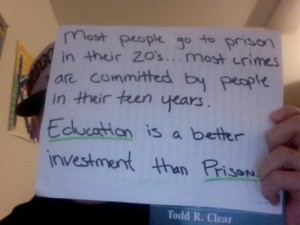 Most people go to prison
in their 20's...most crimes
are committed by people
in their teen years.
Education is a better
investment than Prison.
Todd R. Clear